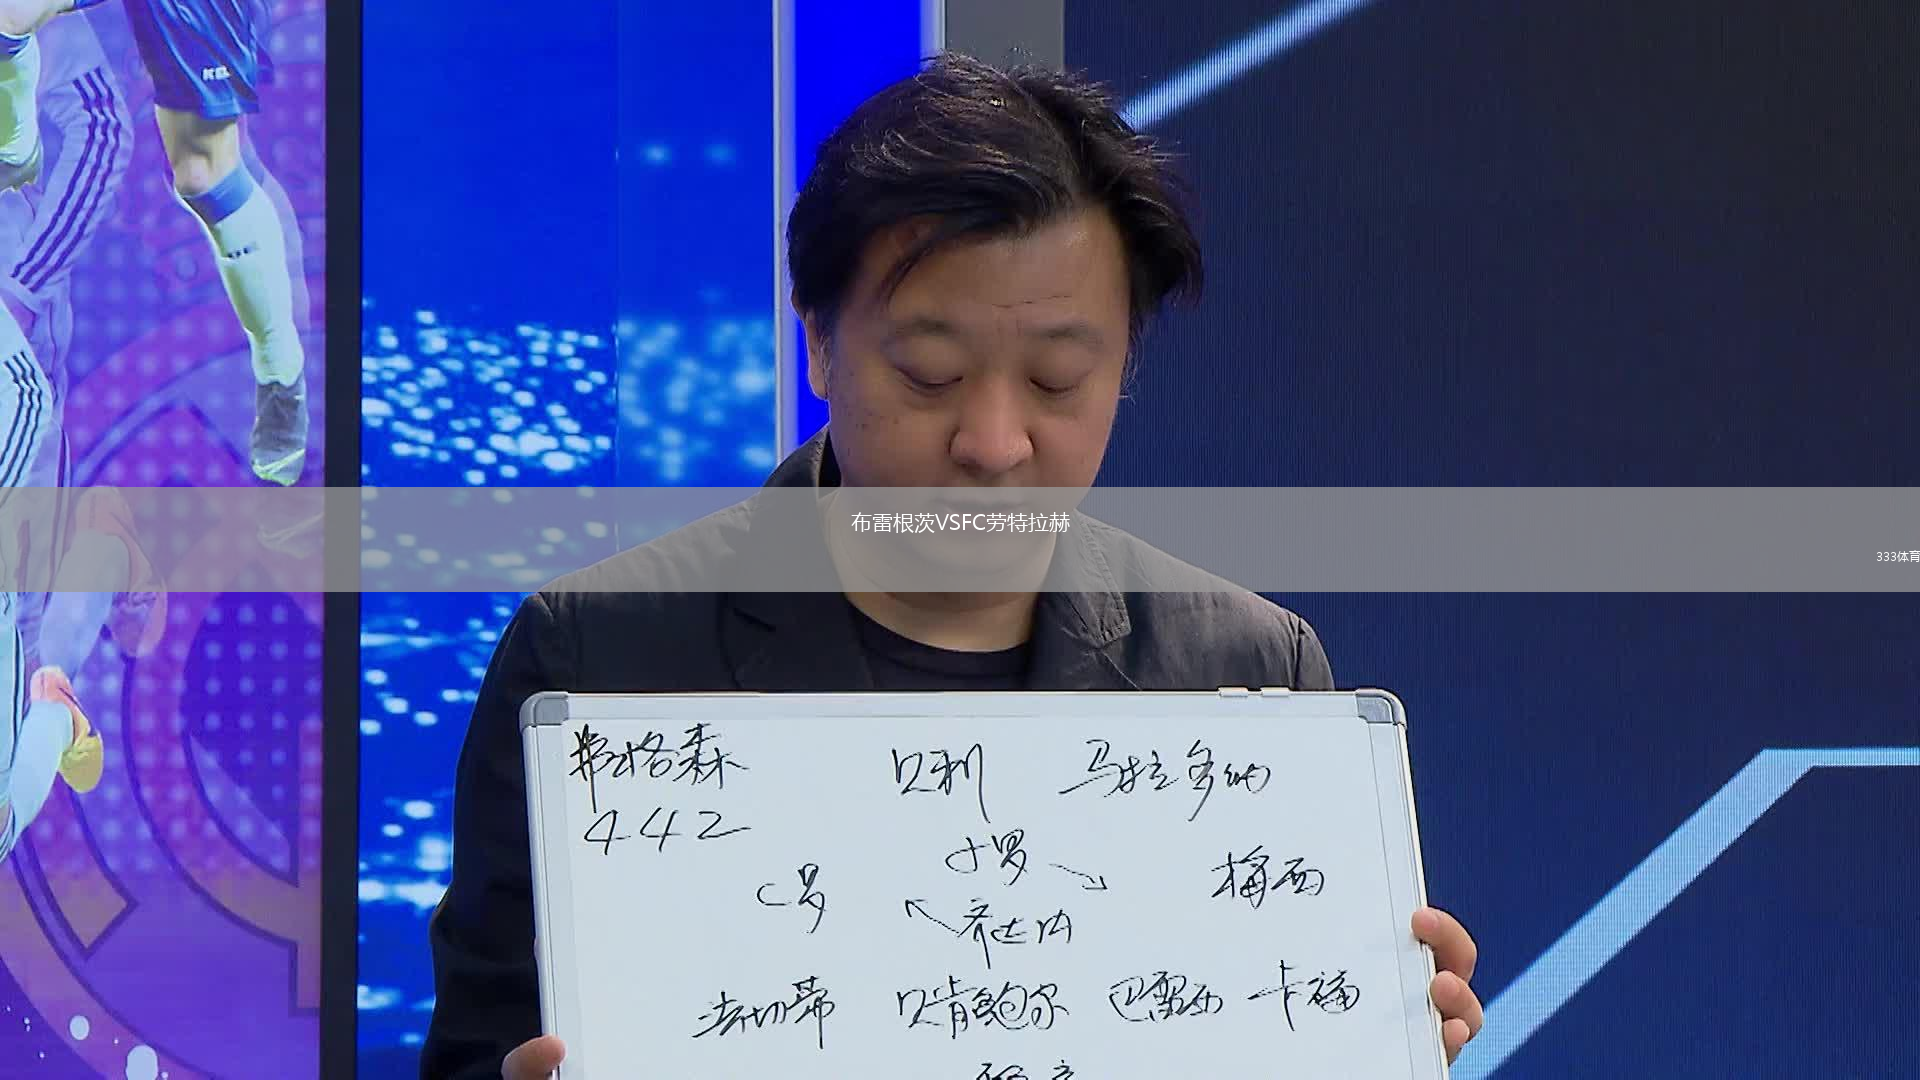 布雷根茨VSFC劳特拉赫
333体育
弗格森 贝利 马拉多纳
442
小罗
C罗 梅西
齐达内
法切蒂 贝肯鲍尔 巴雷西 卡福